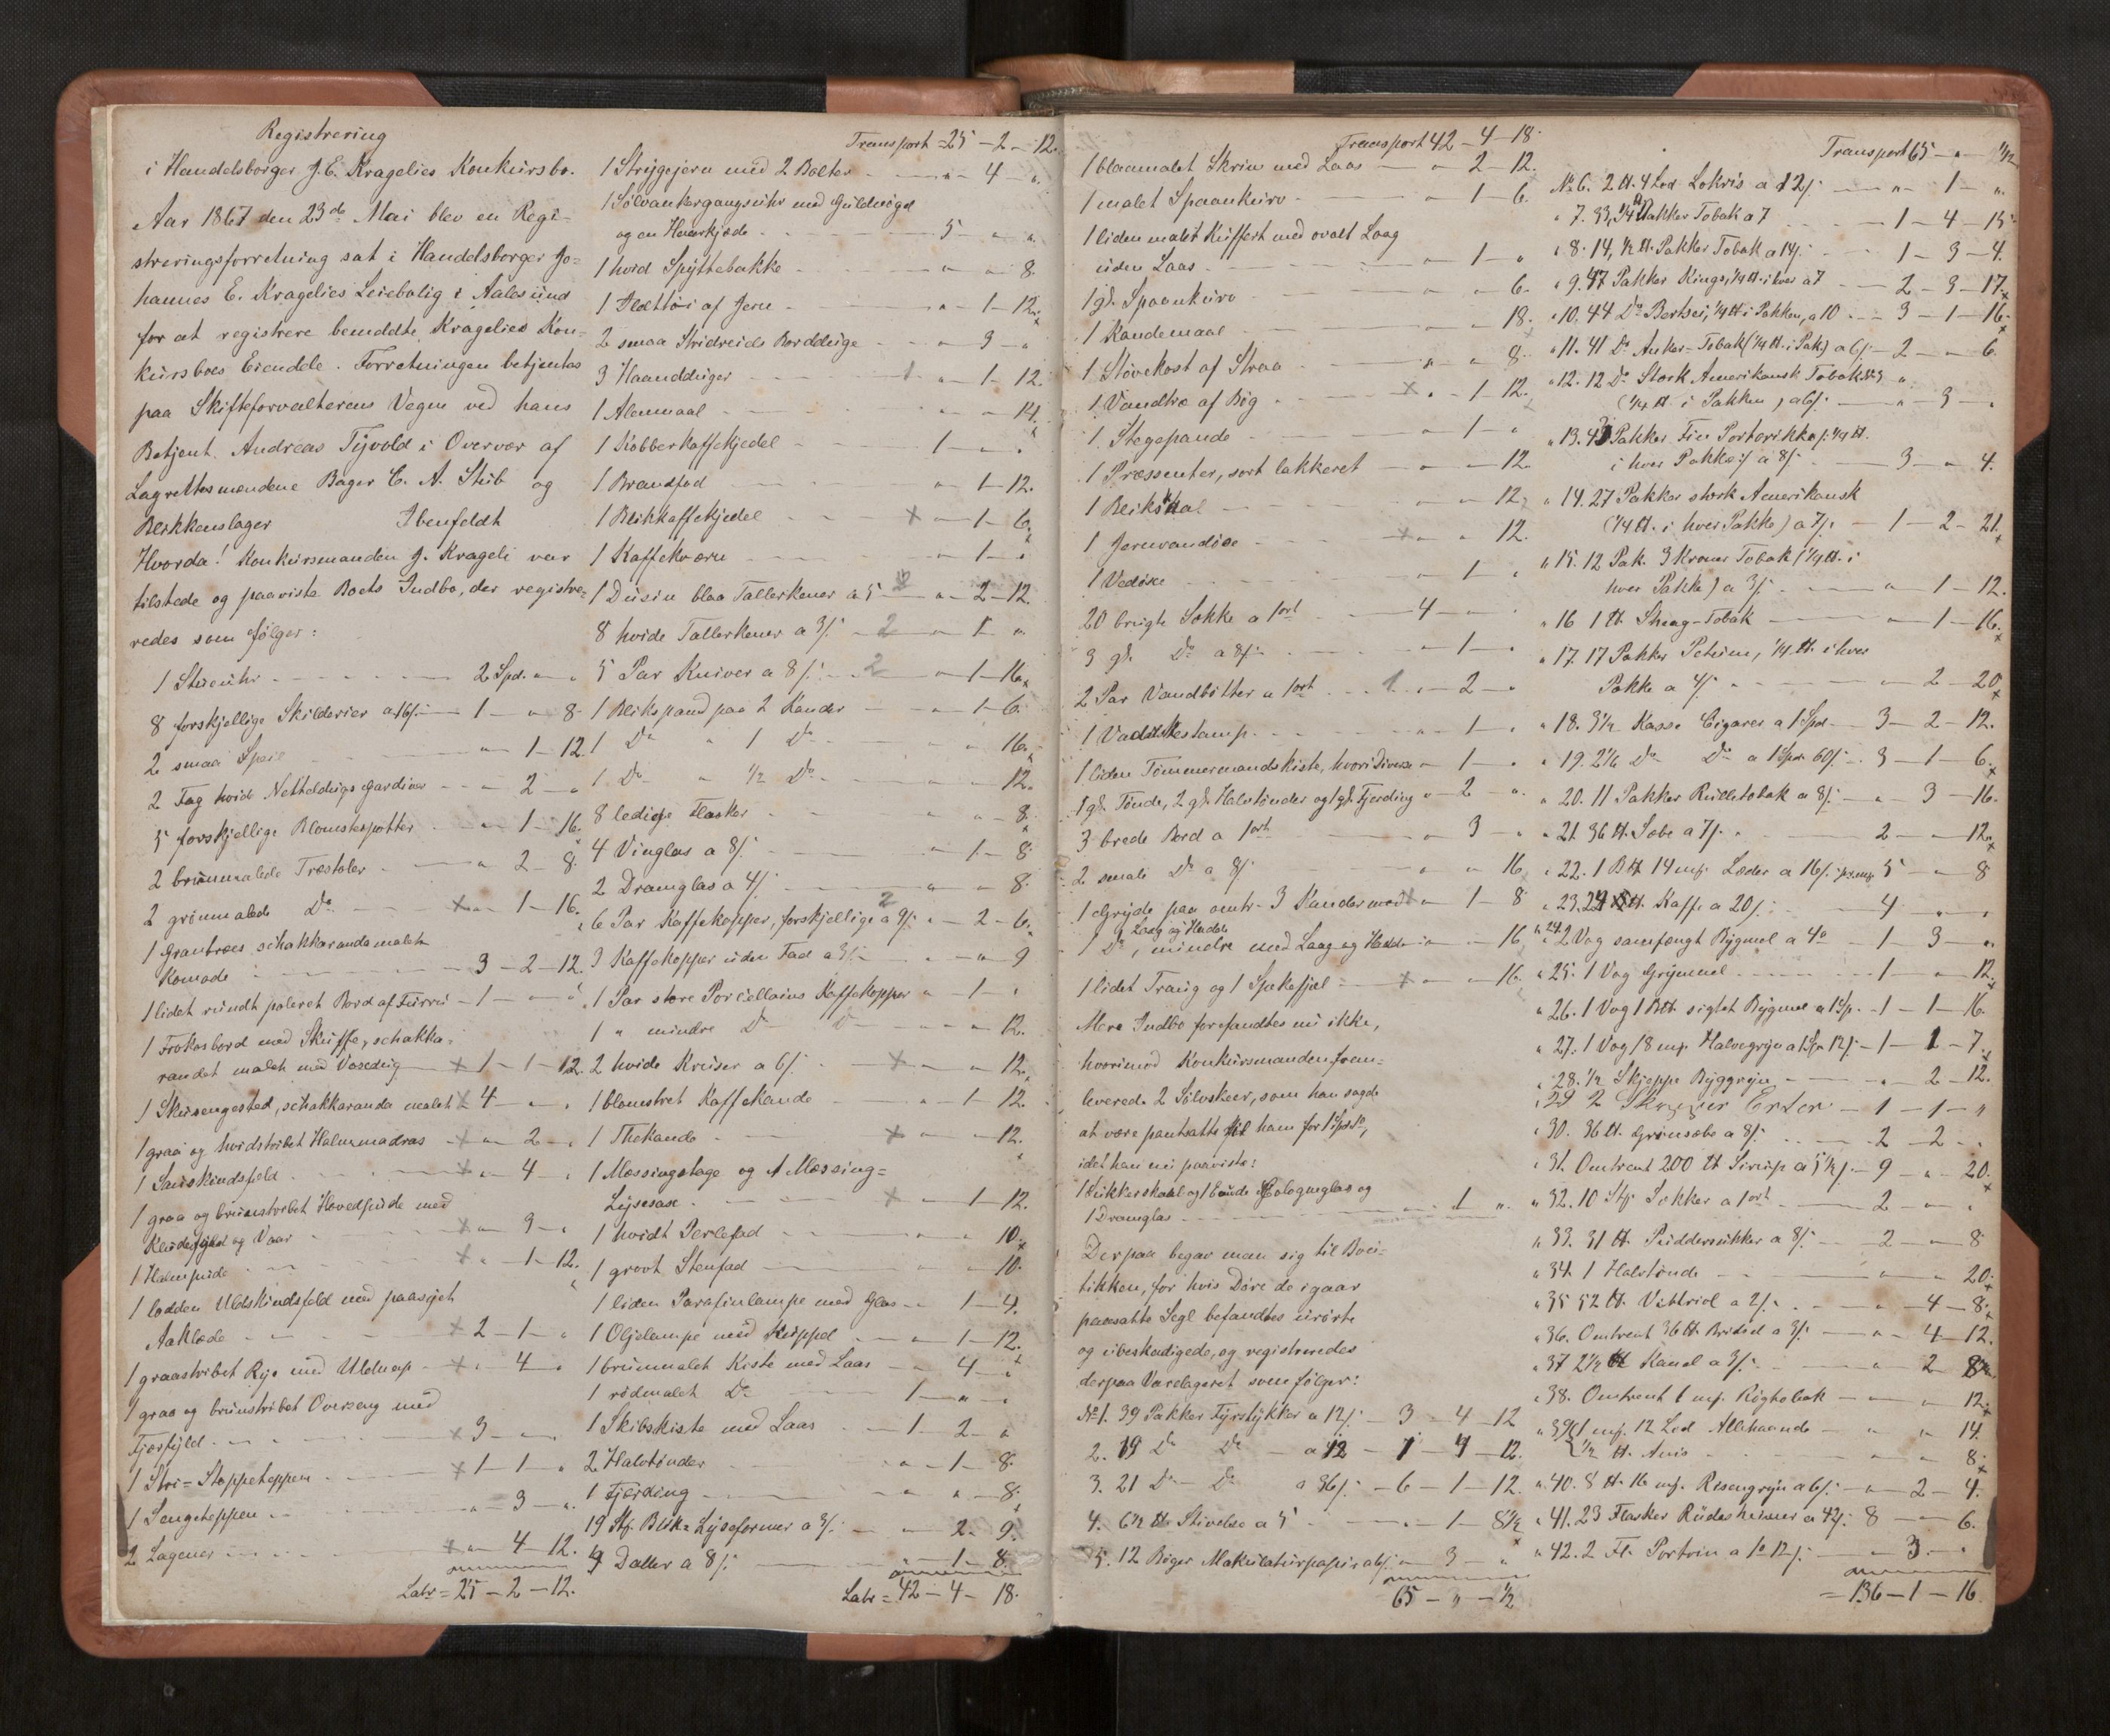 Registrering
i Handelsborger J. E. Kragelies Konkursbo.
Aar 1867 den 23de Mai blev en Regi-
streringsforretning sat i Handelsborger Jo=
hannes E. Kragelies Leiebolig i Aalesund
for at registrere bemeldte Kragelies Kon-
kursboes Eiendele. Forretningen betjentes
paa Skifteforvalterens Vegne ved hans
Betjent Andreas Tyvold i Overvær af
Lagrettesmændene Bager C. A. Stub og
Blikkenslager Ibenfeldt
Hvorda! Konkursmanden J. Krageli var
tilstede og paaviste Boets Indbo, der registre=
redes som følger:
1 Stueuhr 2 Spd. " "
8 forskjellige Skilderier a 16/: 1 - " 8
2 smaa Speil " - 1 - 12
2 Fag hvide Netteldugs Gardiner " - 2 - "
5 forskjellige Blomsterpotter " - 1 - 16.
2 brunmalede Træstoler " 2 - 8.
2 grønmalede Do x " - 1 - 16.
1 Grantræes schakkaranda malet
Komode 3 - 2 - 12.
1 lidet rundt poleret Bord af Furru - 1 - " "
1 Frokosbord med Skuffe, schakka=
randa malet med Voxdug x 1 - 1 - 12.
1 Skuvsengested, schakkaranda malet x 4 - " "
1 graa og hvidstribet Halmmadras x " 2 - "
1 Saueskindsfeld x " 4 "
1 graa og brunstribet Hovedpude med
Kludefyld og Vaar x " 3 - "
1 Halmpude x " 1 - 12.
1 lodden Uldskindsfeld med paasyet
Aaklæde x 2 - 1 - "
1 graastribet Rye med Uldnap x " 4 "
1 graa og brunstribet Overseng med
Fjærfyld x 3 - " "
1 Stri=Stoppeteppen x 1 - 1 - "
1 Sengeteppen " 3 - "
2 Lagener x " 4 - 12.
Latr = 25 - 2 - 12.
Transport = 25 - 2 - 12.
1 Strygejern med 2 Bolter " 4 "
1 Sølvankergangsuhr med Guldnøgel
og en Haarkjæde 5 - " "
1 hvid Spyttebakke " " 8.
1 Ildtøi af Jern " 1 - 12.
2 smaa Stridreiels Borddûge " 3 "
3 Haandduger " 1 - 12.
1 Alenmaal " " 14.
1 Kobberkaffekjedel 1 - " "
1 Brændfad " 1 - 12.
1 Blikkaffekjedel x " 1 - 6.
1 Kaffekværn " 1 - "
1 Dusin blaa Tallerkener a 5 " 2 - 12.
8 hvide Tallerkener a 3/: 2 " 1 "
5 Par Kniver a 8/: 2 " 1 - 16.
1 Blikspand paa 2 Kander " 1 - 6.
1 Do " 1 Do " " 16.
1 Do " 1/2 Do " " 12.
8 ledige Flasker " " 8.
4 Vinglas a 8/: " 1 - 8
2 Dramglas a 4/: " " 8.
6 Par Kaffekopper, forskjellige a 9/: " 2 - 6.
3 Kaffekopper uden Fad a 3/: " " 9
1 Par store Porcellains Kaffekopper " 1 "
1 " mindre Do Do " " 12.
2 hvide Kruser a 6/: x " " 12.
1 blomstret Kaffekande " 1 - 12.
1 Thekande x " 12.
1 Messingstage og 1 Messing=
Lysesax x " 1 - 12.
1 hvidt Stenfad " " 10.
1 grovt Stenfad " " 10.
1 liden Parafinlampe med Glas " 1 - 4.
1 Oljelampe med Kuppel " 1 - 12.
1 brunmalet Kiste med Laas " 4 "
1 rødmalet Do 1 - " "
1 Skibskiste med Laas 1 - 2 - "
2 Halvtønder " 1 - 8.
1 Fjerding " " 8.
19 Stk. Blik=Lyseformer a 3/: " 2 - 9.
4 Daller a 8/: " 1 - 8.
Latr = 42 - 4 - 18.
Transport 42 - 4 - 18.
1 blaamalet Skrin med Laas " 2 - 12.
1 malet Spaankurv " 1 - 6.
1 liden malet Kuffert med ovalt Laag
uden Laas " 1 - "
1 gl. Spaankurv " " 6.
1 Kandemaal " " 18.
1 Støvekost af Straa " " 8.
1 Vandtræ af Bøg x " 1 - 12.
1 Stegepande " 1 - "
1 Præssenter, sort lakkeret " " 12.
1 Blikskaal " " 12.
1 Jernvandøse x " " 12.
1 Vedøxe " 1 "
20 brugte Sække a 1 ort 4 - " "
3 gl. Do a 8/: " 1 - "
2 Par Vandbøtter a 1 ort 1. " 2 - "
1 Vadskestamp " 1 "
1 liden Tømmermandskiste, hvori Diverse " 1 - "
1 gl. Tønde, 2 gl. Halvtønder og 1 gl. Fjerding " 2 "
3 brede Bord a 1 ort " 3 "
2 smale Do a 8/: " " 16
1 Gryde paa omtr. 3 Kander med x " 1 - 8
Laag og Hadde
1 Do, mindre med Laag og Hadde " " 16.
1 lidet Traug og 1 Spekefjæl x " " 16.
Mere Indbo forefandtes nu ikke,
hvorimod Konkursmanden frem=
leverede 2 Sølvskeer, som han sagde
at være pantsatte til ham for 1 Spd.,
idet han nu paaviste:
1 Sukkerskaal og 1 Eaude Cologneglas og
1 Dramglas " 1 "
Derpaa begav man sig til Bou=
tikken, for hvis Døre de igaar
paasatte Segl befandtes urørte
og ubeskadigede, og registreredes
derpaa Varelageret som følger:
No 1. 39 Pakker Fyrstykker a 12/: 3 - 4 - 12
2. 19 Do Do a 12 - 1 - 4 - 12.
3. 21 Do Do a 36/: - 6 - 1 - 12.
4. 6 1/2 ℔ Stivelse a 5 " 1 - 8 1/2
5. 12 Bøger Makulaturpapir a 6/: " 3 "
65 - " - 1/2
Transport 65 - " 1/2
No 6. 2 ℔. 4 Lod Lakris a 12/: " 1 - "
" 7. 33, 1/4 ℔ Pakker Tobak a 7 1 - 4 - 15
" 8. 14, 1/2 ℔. Pakker Tobak a 14/: 1 - 3 - 4.
" 9. 47 Pakker Rings, 1/4 ℔. i hver a 7 2 - 3 - 17.
" 10. 44 Do Bertsei, 1/4 ℔ i Pakken, a 10 3 - 1 - 16.
" 11. 41 Do Anker=Tobak (1/4 ℔. i Pak) a 6/: 2 - " 6.
" 12. 12 Do Stærk Amerikansk Tobak
(1/4 ℔. i Pakken) a 6/: " 3 - "
" 13. 43 Pakker Fin Portorikko /: 1/4 ℔.
i hver Pakke :/ a 8/: 3 - " 4.
" 14. 27 Pakker stærk Amerikansk
(1/4 ℔. i hver Pakke) a 7/: 1 - 2 - 21.
" 15. 12 Pak. 3 Kroner Tobak (1/4 ℔. i
hver Pakke) a 3/: " 1 - 12.
" 16 1 ℔. Shag-Tobak " 1 - 16.
" 17. 17 Pakker Petum, 1/4 ℔. i hver
Pakke a 4/: " 2 - 20
" 18. 3 1/2 Kasse Cigarer a 1 Spd 3 - 2 - 12.
" 19. 2 1/6 Do Do a 1 Spd. 60/: 3 - 1 - 6.
" 20. 11 Pakker Rulletobak a 8/: " 3 - 16.
" 21. 36 ℔. Sæbe a 7/: 2 - " 12.
" 22. 1 B℔ 14 mk. Læder a 16/: pr. mk 5 - " 8
" 23. 24 ℔. Kaffe a 20/: 4 " "
" 24. 2 Vog samfængt Bygmel a 4o - 1 - 3 - "
" 25. 1 Vog Grynmel 1 - " 12.
" 26. 1 Vog 1 B℔. sigtet Bygmel a 1 Sp. - 1 - 1 - 16.
" 27. 1 Vog 18 mk. Halvegryn a 1 Sp 12/: - 1 - 1 - 7.
" 28. 1/2 Skjeppe Byggryn " 2 - 12.
" 29 2 Skjepper Erter - 1 - 1 - "
" 30. 36 ℔. Grønsæbe a 8/: 2 - 2 "
" 31. Omtrent 200 ℔ Sirup a 5 1/2/: 9 " 20.
" 32. 10 Stk. Sækker a 1 ort 2 - " "
" 33. 31 ℔. Puddersukker a 8/: 2 - " 8
" 34. 1 Halvtønde " " 20.
" 35 52 ℔. Viktriol a 2/: " 4 - 8.
" 36. Omtrent 36 ℔. Bridsel a 3/: " 4 - 12.
" 37 2 1/2 ℔ Kanel a 3/: " 2 8.
" 38. Omtrent 1 mk. Røgtobak " 12.
" 39 1 mk. 12 Lod Allehaande " " 14.
1/2 ℔. Anis " " 8.
" 40. 8 ℔. 16 mk. Risengryn a 6/: " 2 - 4.
" 41. 23 Flasker Rüdesheimer a 42/: 8 " 6.
" 42. 2 Fl. Portvin a 1o 12/: " 3 - "
= 136 - 1 - 16.